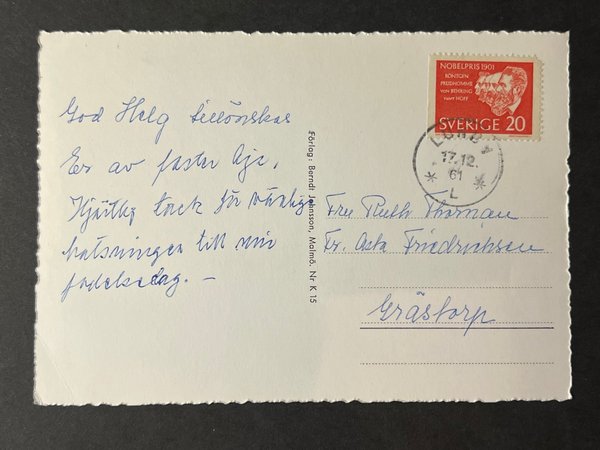 God Helg tillönskas
Er av faster Aje,
Hjärtlig tack för vänliga
hälsningen till min
födelsedag. —
Förlag: Berndt Johnsson, Malmö. Nr K 15
NOBELPRIS 1901
RÖNTGEN
PRUDHOMME
VON BEHRING
VAN'T HOFF
SVERIGE 20
17.12.
61
L
Fru Ruth Thornan
Fr. Asta Friedrichsen
Grästorp